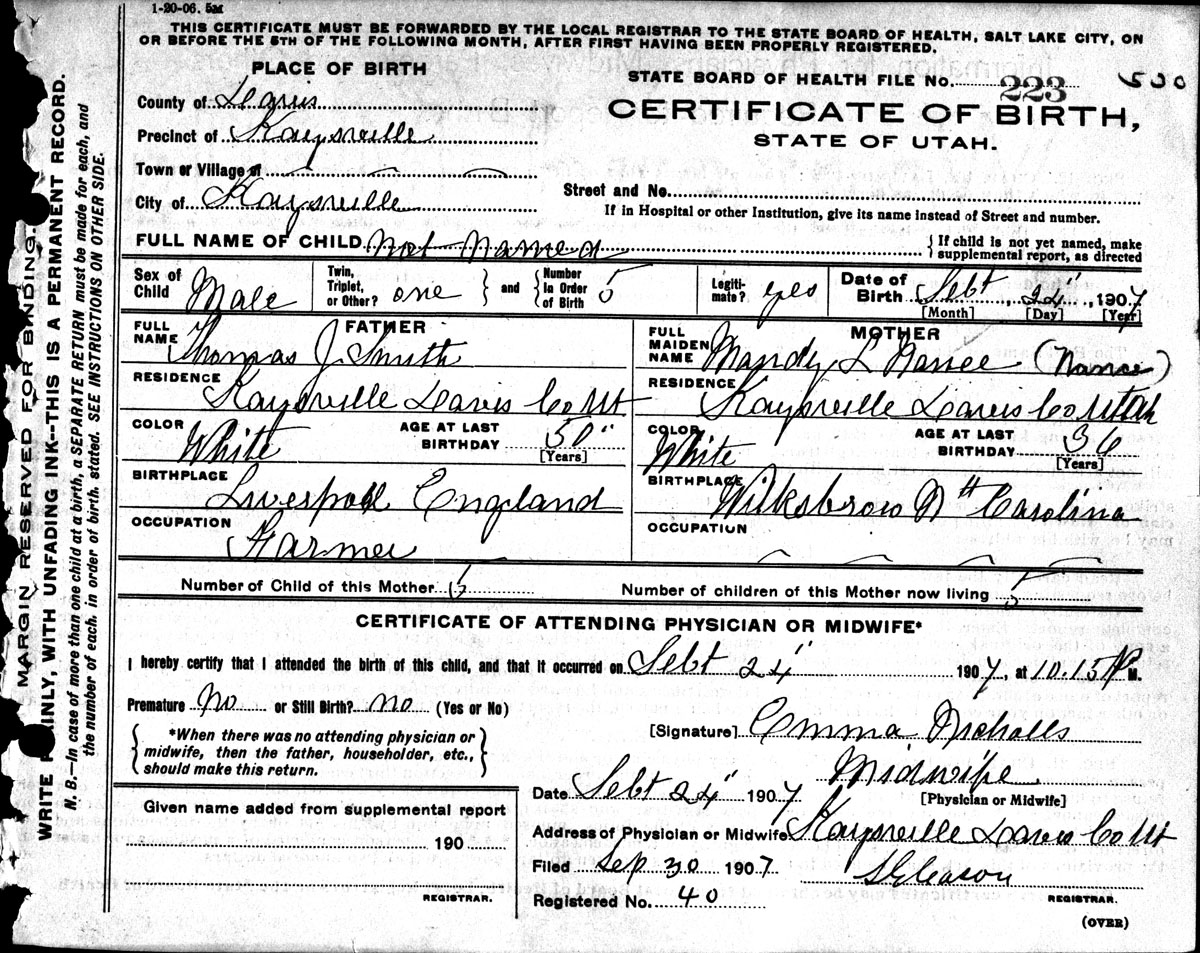 1-20-06. 5M
THIS CERTIFICATE MUST BE FORWARDED BY THE LOCAL REGISTRAR TO THE STATE BOARD OF HEALTH, SALT LAKE CITY, ON
OR BEFORE THE 5TH OF THE FOLLOWING MONTH, AFTER FIRST HAVING BEEN PROPERLY REGISTERED.
PLACE OF BIRTH
STATE BOARD OF HEALTH FILE No. 223 530
County of Davis
CERTIFICATE OF BIRTH,
Precinct of Kaysville
STATE OF UTAH.
Town or Village of
Street and No.
City of Kaysville
If in Hospital or other Institution, give its name instead of Street and number.
FULL NAME OF CHILD Not Named
{ If child is not yet named, make
supplemental report, as directed
Sex of Child Male
Twin, Triplet, or Other? one } and { Number In Order of Birth 5
Legiti-mate? yes
Date of Birth Sebt 24", 1907
[Month] [Day] [Year]
FATHER
FULL NAME Thomas J. Smith
RESIDENCE Kaysville Davis Co Ut
COLOR White
AGE AT LAST BIRTHDAY 50"
[Years]
BIRTHPLACE Liverpool England
OCCUPATION Farmer
MOTHER
FULL MAIDEN NAME Mandy L Nance (Nance)
RESIDENCE Kaysville Davis Co Utah
COLOR White
AGE AT LAST BIRTHDAY 36
[Years]
BIRTHPLACE Wilksbrow Nth Carolina
OCCUPATION
Number of Child of this Mother 5
Number of children of this Mother now living 5
CERTIFICATE OF ATTENDING PHYSICIAN OR MIDWIFE*
I hereby certify that I attended the birth of this child, and that it occurred on Sebt 24" 1907, at 10.15 P M.
Premature No or Still Birth? no (Yes or No)
{ *When there was no attending physician or
midwife, then the father, householder, etc.,
should make this return. }
[Signature] Emma Nicholls
Midwife
[Physician or Midwife]
Date Sebt 24" 1907
Address of Physician or Midwife Kaysville Davis Co Ut
Filed Sep 30 1907
S Gleason
REGISTRAR.
Registered No. 40
(OVER)
Given name added from supplemental report
190
REGISTRAR.
MARGIN RESERVED FOR BINDING.
WRITE PLAINLY, WITH UNFADING INK--THIS IS A PERMANENT RECORD.
N. B.—In case of more than one child at a birth, a SEPARATE RETURN must be made for each, and
the number of each, in order of birth, stated. SEE INSTRUCTIONS ON OTHER SIDE.